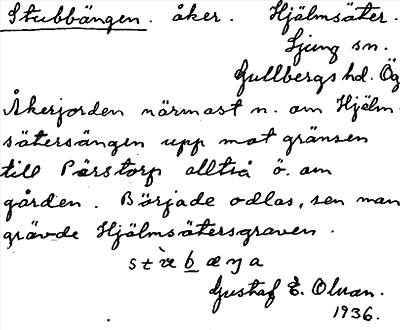 Stubbängen. åker. Hjälmsäter.
Ljung sn.
Gullbergs hd. Ög
Åkerjorden närmast n. om Hjälm-
sätersängen upp mot gränsen
till Pärstorp alltså ö. om
gården. Började odlas, sen man
grävde Hjälmsätersgraven.
Gustaf E. Olvan.
1936.